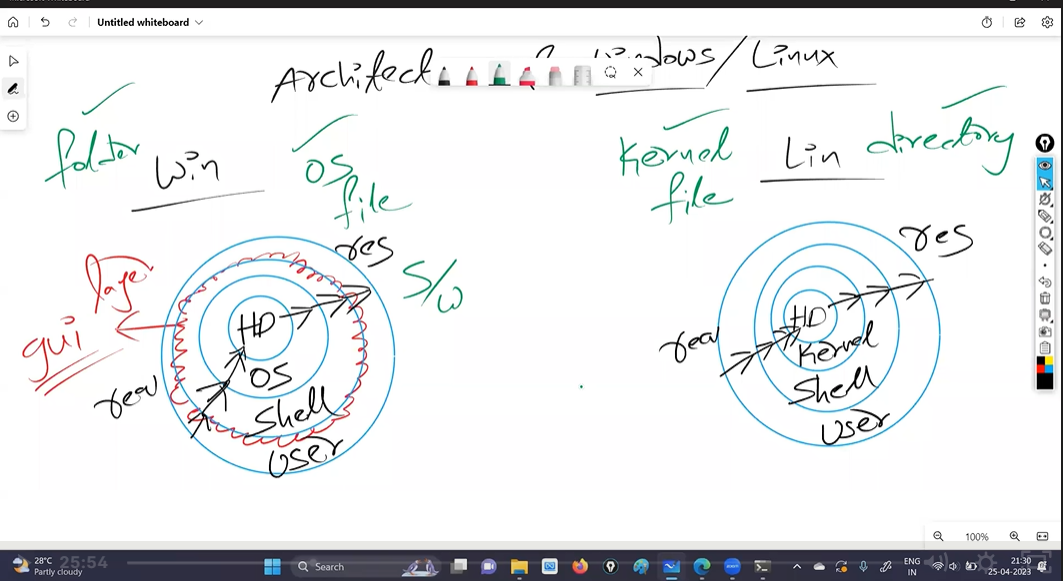 Untitled whiteboard
Linux
folder
Win
OS
file
Kernel
file
Lin
directory
res
S/W
gui
HD
OS
Shell
User
res
HD
Kernel
Shell
User
100%
28°C
Partly cloudy
25:54
Search
ENG
IN
21:30
25-04-2023